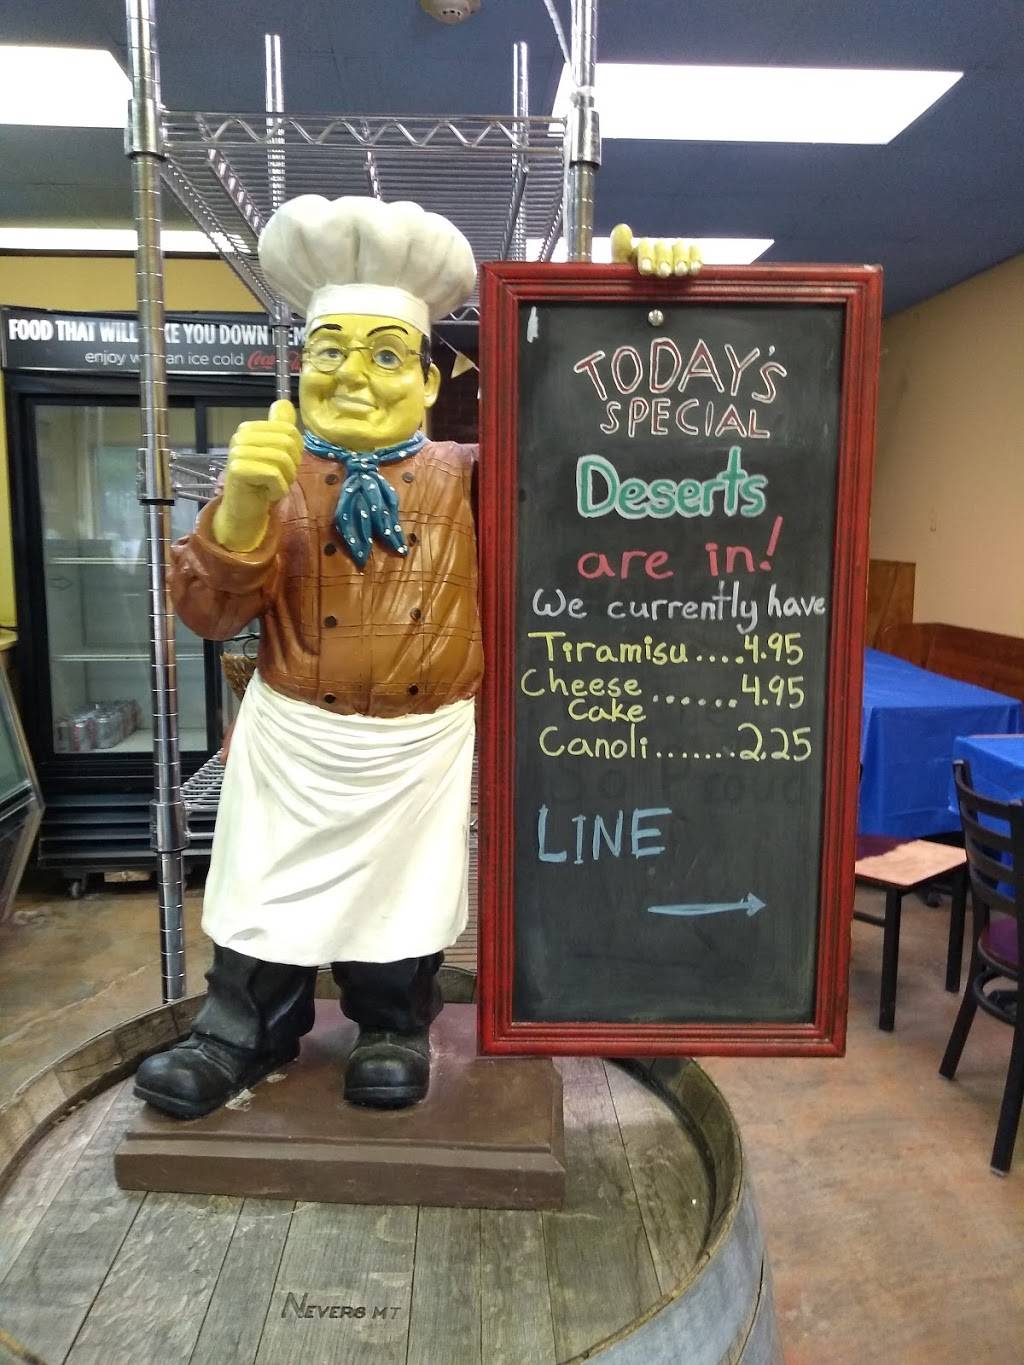 FOOD THAT WILL KE YOU DOWN
enjoy an ice cold Coca
TODAY'S
SPECIAL
Deserts
are in!
We currently have
Tiramisu....4.95
Cheese ...... 4.95
Cake
Canoli.......2.25
LINE
NEVERS MT